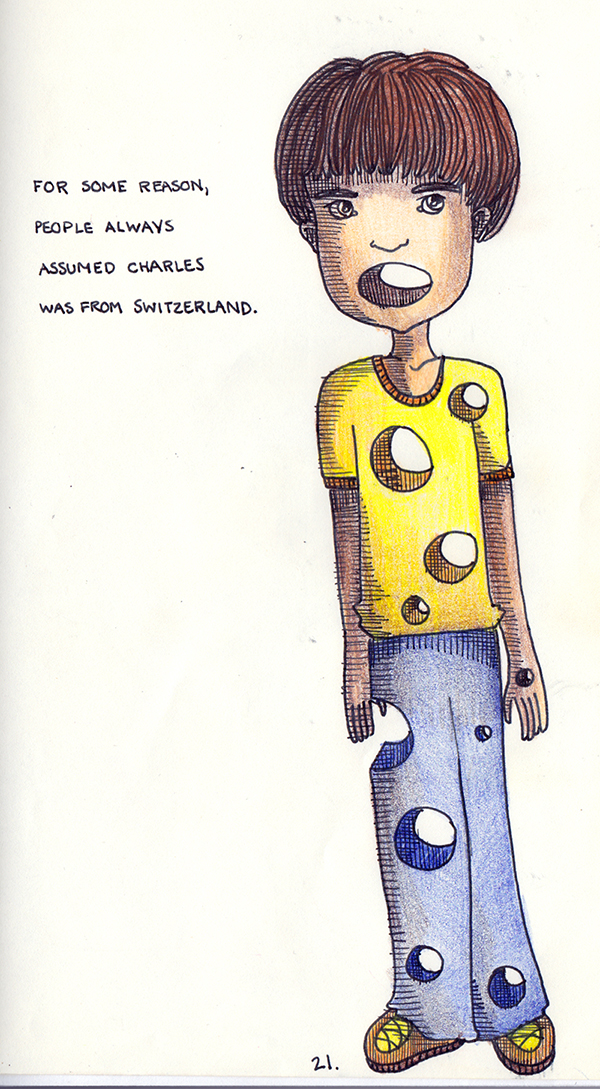 FOR SOME REASON,
PEOPLE ALWAYS
ASSUMED CHARLES
WAS FROM SWITZERLAND.
21.